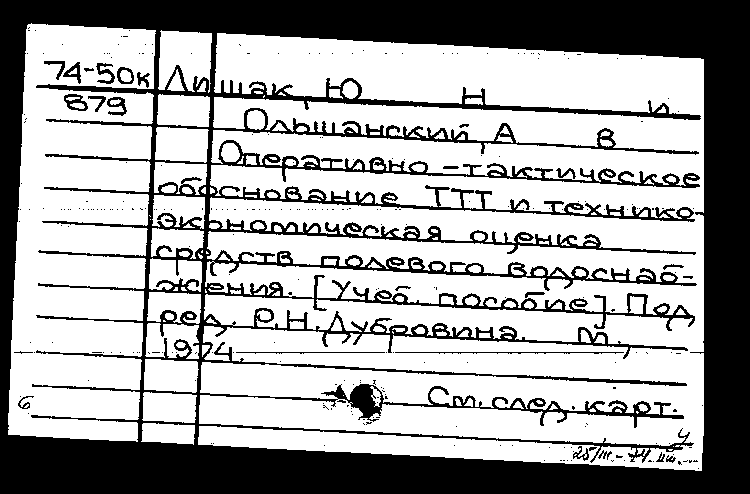 74-50к Лишак, Ю Н и
879
Ольшанский, А В
Оперативно-тактическое
обоснование ТТТ и технико-
экономическая оценка
средств полевого водоснаб-
жения. [Учеб. пособие]. Под
ред. Р.Н. Дубровина. М.,
1974.
См. след. карт.
6
у
25/III-74